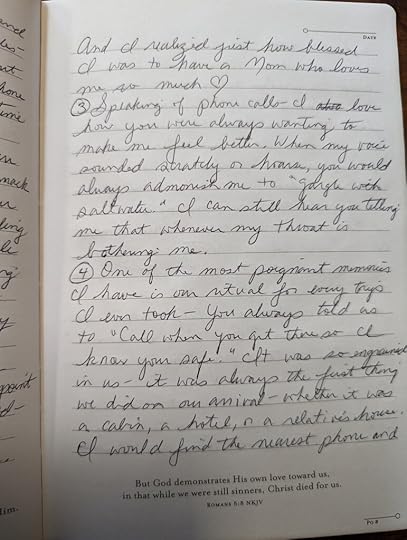 DATE
And I realized just how blessed
I was to have a Mom who loves
me so much ♡
③ Speaking of phone calls – I also love
how you were always wanting to
make me feel better. When my voice
sounded scratchy or hoarse, you would
always admonish me to "gargle with
saltwater." I can still hear you telling
me that whenever my throat is
bothering me.
④ One of the most poignant memories
I have is our ritual for every trip
I ever took – You always told us
to "Call when you get there so I
know your safe." It was so engrained
in us – it was always the first thing
we did on our arrival – whether it was
a cabin, a hotel, or a relative's house.
I would find the nearest phone and
But God demonstrates His own love toward us,
in that while we were still sinners, Christ died for us.
ROMANS 5:8 NKJV